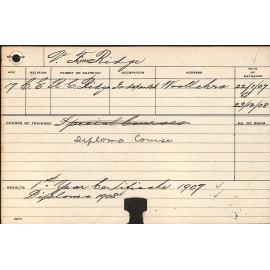 V. Ridge
AGE RELIGION PARENT OR GUARDIAN OCCUPATION ADDRESS DATE OF ENTRANCE
17 C.E. R. C. Ridge Independent Woollahra 22/1/07
23/12/08
COURSE OF TRAINING Special Courses NO. OF ROOM
Diploma Course
RESULTS 1st Year Certificate 1907
Diploma 1908